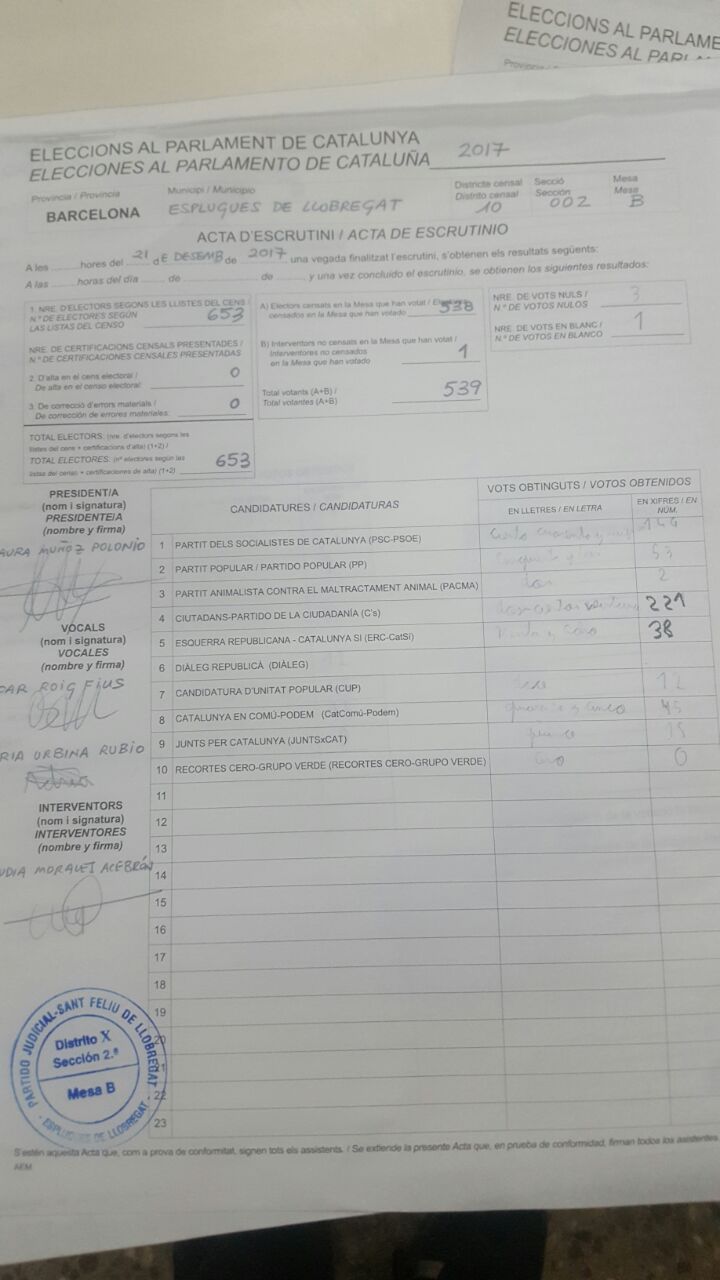 ELECCIONS AL PARLAME
ELECCIONES AL PARLA
ELECCIONS AL PARLAMENT DE CATALUNYA
ELECCIONES AL PARLAMENTO DE CATALUÑA 2017
Provincia / Provincia Municipi / Municipio Districte censal Secció Mesa
Distrito censal Sección Mesa
BARCELONA ESPLUGUES DE LLOBREGAT 10 002 B
ACTA D'ESCRUTINI / ACTA DE ESCRUTINIO
A les hores del 21 de DESEMB de 2017 una vegada finalitzat l'escrutini, s'obtenen els resultats següents:
A las horas del día de de y una vez concluido el escrutinio, se obtienen los siguientes resultados:
1. NRE. D'ELECTORS SEGONS LES LLISTES DEL CENS /
N.º DE ELECTORES SEGÚN
LAS LISTAS DEL CENSO 653
NRE. DE CERTIFICACIONS CENSALS PRESENTADES /
N.º DE CERTIFICACIONES CENSALES PRESENTADAS
2. D'alta en el cens electoral /
De alta en el censo electoral: 0
3. De correcció d'errors materials /
De corrección de errores materiales: 0
TOTAL ELECTORS: (nre. d'electors segons les
llistes del cens + certificacions d'alta) (1+2) /
TOTAL ELECTORES: (nº electores según las
listas del censo + certificaciones de alta) (1+2) 653
A) Electors censats en la Mesa que han votat /
censados en la Mesa que han votado 538
B) Interventors no censats en la Mesa que han votat /
Interventores no censados
en la Mesa que han votado 1
Total votants (A+B) /
Total votantes (A+B) 539
NRE. DE VOTS NULS /
N.º DE VOTOS NULOS 3
NRE. DE VOTS EN BLANC /
N.º DE VOTOS EN BLANCO 1
PRESIDENT/A
(nom i signatura)
PRESIDENTE/A
(nombre y firma)
AURA MUÑOZ POLONIO
VOCALS
(nom i signatura)
VOCALES
(nombre y firma)
CAR ROIG FIUS
RIA URBINA RUBIO
INTERVENTORS
(nom i signatura)
INTERVENTORES
(nombre y firma)
UDIA MORALES ACEBRÓN
CANDIDATURES / CANDIDATURAS VOTS OBTINGUTS / VOTOS OBTENIDOS
EN LLETRES / EN LETRA EN XIFRES / EN NÚM.
1 PARTIT DELS SOCIALISTES DE CATALUNYA (PSC-PSOE)
2 PARTIT POPULAR / PARTIDO POPULAR (PP) 53
3 PARTIT ANIMALISTA CONTRA EL MALTRACTAMENT ANIMAL (PACMA) dos 2
4 CIUTADANS-PARTIDO DE LA CIUDADANÍA (C's) 221
5 ESQUERRA REPUBLICANA - CATALUNYA SI (ERC-CatSí) 38
6 DIÀLEG REPUBLICÀ (DIÀLEG)
7 CANDIDATURA D'UNITAT POPULAR (CUP) 12
8 CATALUNYA EN COMÚ-PODEM (CatComú-Podem) 45
9 JUNTS PER CATALUNYA (JUNTSxCAT) 15
10 RECORTES CERO-GRUPO VERDE (RECORTES CERO-GRUPO VERDE) 0
11
12
13
14
15
16
17
18
19
20
21
22
23
PARTIDO JUDICIAL-SANT FELIU DE LLOBREGAT
Distrito X
Sección 2.ª
Mesa B
- ESPLUGUES DE LLOBREGAT -
S'estén aquesta Acta que, com a prova de conformitat, signen tots els assistents. / Se extiende la presente Acta que, en prueba de conformidad, firman todos los asistentes.
AEM